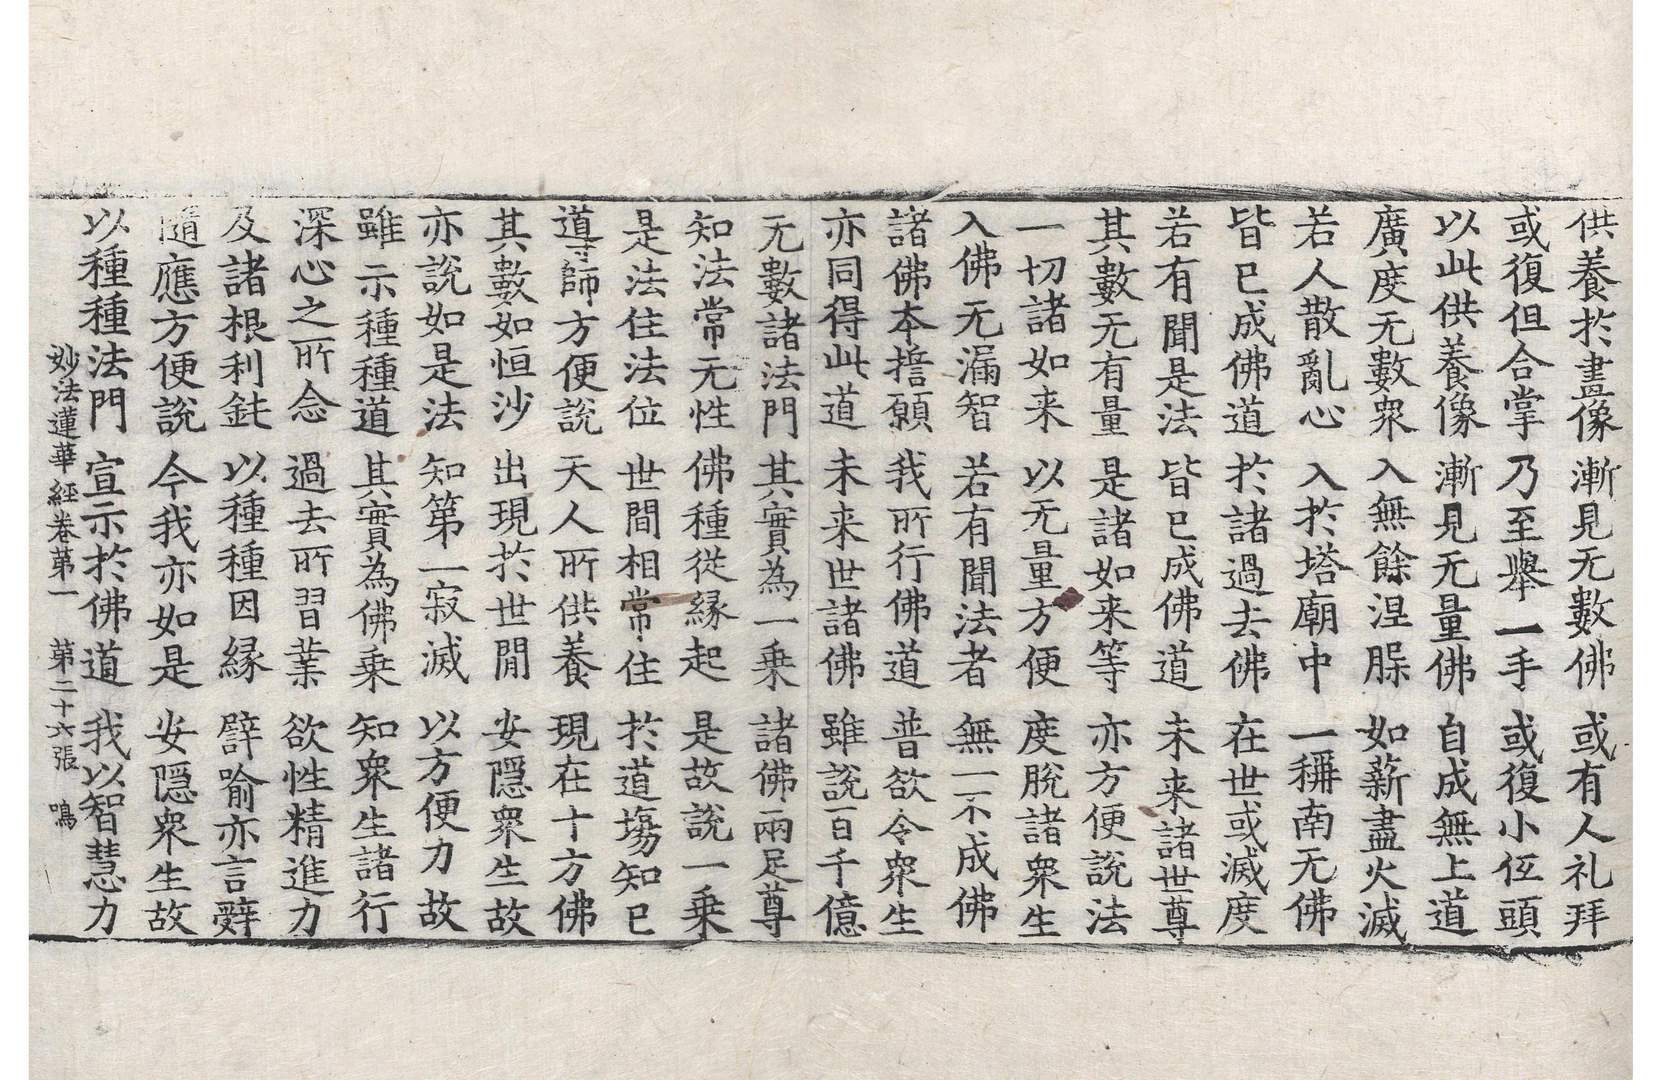 供養於畫像 漸見无數佛 或有人礼拜
或復但合掌 乃至舉一手 或復小伍頭
以此供養像 漸見无量佛 自成無上道
廣度无數衆 入無餘涅槃 如薪盡火滅
若人散亂心 入於塔廟中 一稱南无佛
皆已成佛道 於諸過去佛 在世或滅度
若有聞是法 皆已成佛道 未来諸世尊
其數无有量 是諸如来等 亦方便說法
一切諸如来 以无量方便 度脫諸衆生
入佛无漏智 若有聞法者 無一不成佛
諸佛本擔願 我所行佛道 普欲令衆生
亦同得此道 未来世諸佛 雖說百千億
无數諸法門 其實為一乗 諸佛兩足尊
知法常无性 佛種從縁起 是故說一乗
是法住法位 世間相常住 於道塲知已
導師方便說 天人所供養 現在十方佛
其數如恒沙 出現於世間 安隱衆生故
亦說如是法 知第一寂滅 以方便力故
雖示種種道 其實為佛乗 知衆生諸行
深心之所念 過去所習業 欲性精進力
及諸根利鈍 以種種因縁 譬喻亦言辭
隨應方便說 今我亦如是 安隱衆生故
以種種法門 宣示於佛道 我以智慧力
妙法蓮華經卷第一 第二十六張 鳴